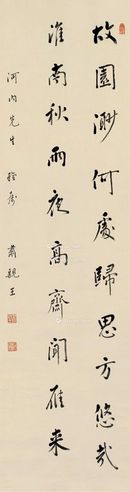 故園渺何處歸思方悠哉
淮南秋雨夜高齋聞雁来
河内先生
肅親王